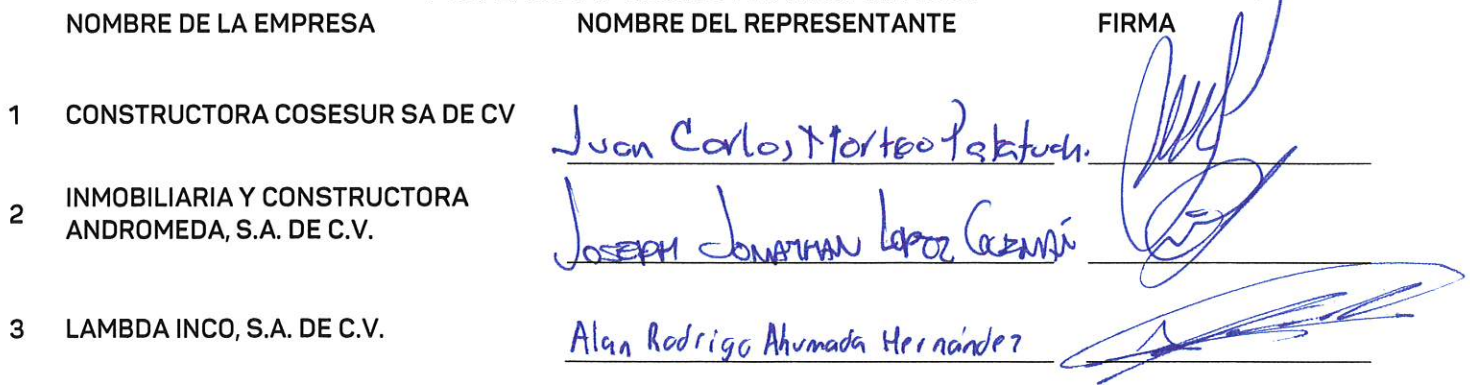 NOMBRE DE LA EMPRESA NOMBRE DEL REPRESENTANTE FIRMA
1 CONSTRUCTORA COSESUR SA DE CV Juan Carlos Morteo
2 INMOBILIARIA Y CONSTRUCTORA
ANDROMEDA, S.A. DE C.V. JOSEPH JONATHAN LOPEZ GUZMÁN
3 LAMBDA INCO, S.A. DE C.V. Alan Rodrigo Ahumada Hernández